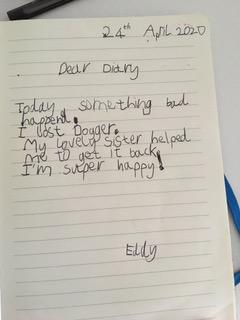 24th April 2020
Dear Diary
Today something bad
happend.
I lost Dogger.
My lovely sister helped
me to get it back.
I'm supper happy!
Eddy